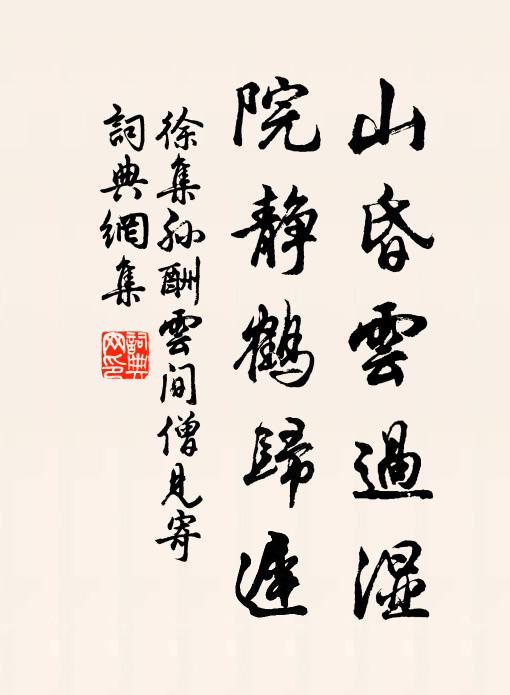 山昏雲過濕
院静鶴歸遲
徐集孙酬雲间僧見寄
詞典網集
詞典
网印